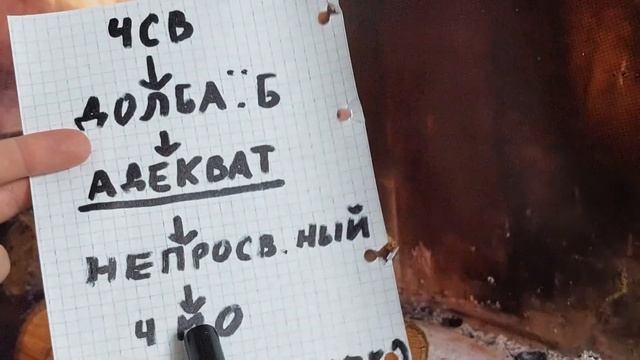 ЧСВ
ДОЛБА..Б
АДЕКВАТ
НЕПРОСВ.НЫЙ
ЧМО